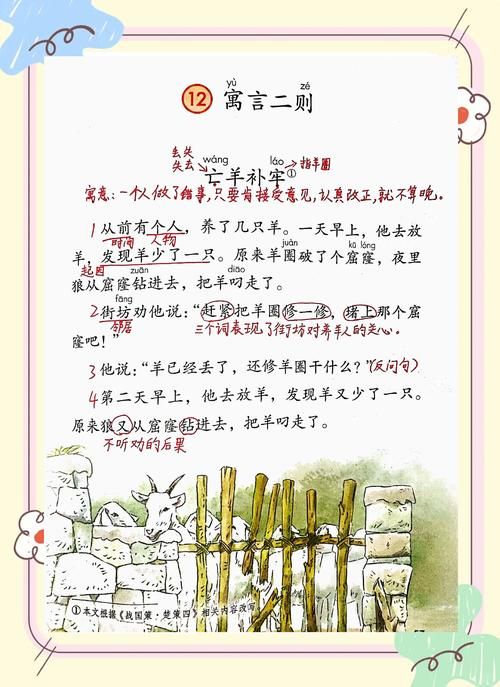 yù zé
12 寓言二则
丢失
失去 wáng láo →指羊圈
亡羊补牢①
寓意：一个人做了错事，只要肯接受意见，认真改正，就不算晚。
1 从前有个人，养了几只羊。一天早上，他去放
时间 人物
juàn kū lóng
羊，发现羊少了一只。原来羊圈破了个窟窿，夜里
起因 zuān diāo
狼从窟窿钻进去，把羊叼走了。
fāng
2 街坊劝他说：“赶紧把羊圈修一修，堵上那个窟
邻居 三个词表现了街坊对养羊人的关心。
窿吧！”
3 他说：“羊已经丢了，还修羊圈干什么？”（反问句）
4 第二天早上，他去放羊，发现羊又少了一只。
原来狼又从窟窿钻进去，把羊叼走了。
不听劝的后果
① 本文根据《战国策·楚策四》相关内容改写